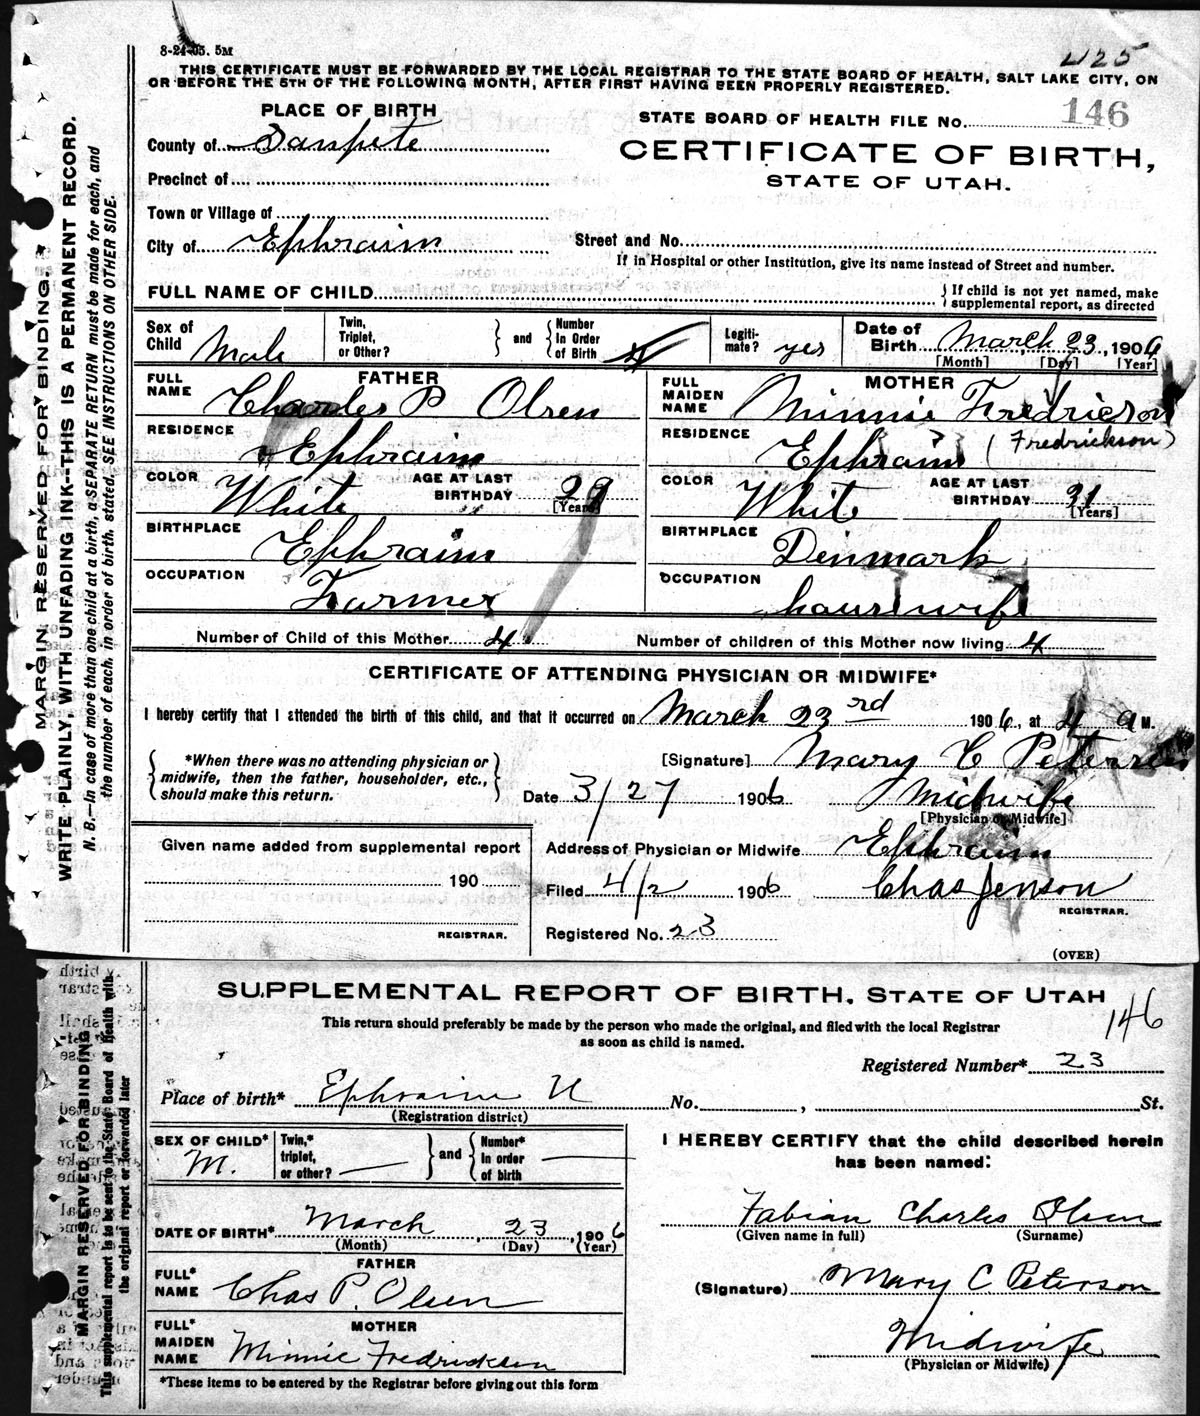 8-24-05. 5M
425
THIS CERTIFICATE MUST BE FORWARDED BY THE LOCAL REGISTRAR TO THE STATE BOARD OF HEALTH, SALT LAKE CITY, ON
OR BEFORE THE 5TH OF THE FOLLOWING MONTH, AFTER FIRST HAVING BEEN PROPERLY REGISTERED.
PLACE OF BIRTH
STATE BOARD OF HEALTH FILE No. 146
County of Sanpete
CERTIFICATE OF BIRTH,
STATE OF UTAH.
Precinct of
Town or Village of
City of Ephraim
Street and No.
If in Hospital or other Institution, give its name instead of Street and number.
FULL NAME OF CHILD
If child is not yet named, make
supplemental report, as directed
Sex of Child Male
Twin, Triplet, or Other?
and
Number In Order of Birth 4
Legitimate? yes
Date of Birth March 23, 1906
[Month] [Day] [Year]
FATHER
FULL NAME Charles P Olsen
MOTHER
FULL MAIDEN NAME Minnie Fredricson
(Fredrickson)
RESIDENCE Ephraim
RESIDENCE Ephraim
COLOR White
AGE AT LAST BIRTHDAY 29
[Years]
COLOR White
AGE AT LAST BIRTHDAY 31
[Years]
BIRTHPLACE Ephraim
BIRTHPLACE Denmark
OCCUPATION Farmer
OCCUPATION housewife
Number of Child of this Mother 4
Number of children of this Mother now living 4
CERTIFICATE OF ATTENDING PHYSICIAN OR MIDWIFE*
I hereby certify that I attended the birth of this child, and that it occurred on March 23rd 1906, at 4 a M.
*When there was no attending physician or
midwife, then the father, householder, etc.,
should make this return.
[Signature] Mary C Petersen
Date 3/27 1906
Midwife
[Physician or Midwife]
Given name added from supplemental report
190
REGISTRAR.
Address of Physician or Midwife Ephraim
Filed 4/2 1906
Chas Jenson
REGISTRAR.
Registered No. 23
(OVER)
MARGIN RESERVED FOR BINDING,
WRITE PLAINLY, WITH UNFADING INK--THIS IS A PERMANENT RECORD.
N. B.—In case of more than one child at a birth, a SEPARATE RETURN must be made for each, and
the number of each, in order of birth, stated. SEE INSTRUCTIONS ON OTHER SIDE.
SUPPLEMENTAL REPORT OF BIRTH, STATE OF UTAH
146
This return should preferably be made by the person who made the original, and filed with the local Registrar
as soon as child is named.
Registered Number* 23
Place of birth* Ephraim U No. , St.
(Registration district)
SEX OF CHILD* M.
Twin,* triplet, or other? —
and
Number* In order of birth —
DATE OF BIRTH* March, 23, 1906
(Month) (Day) (Year)
FATHER
FULL* NAME Chas P. Olsen
MOTHER
FULL* MAIDEN NAME Minnie Fredricksen
*These items to be entered by the Registrar before giving out this form
I HEREBY CERTIFY that the child described herein
has been named:
Fabian Charles Olsen
(Given name in full) (Surname)
(Signature) Mary C Peterson
Midwife
(Physician or Midwife)
MARGIN RESERVED FOR BINDING
This supplemental report is to be sent to the State Board of Health with
the original report or forwarded later